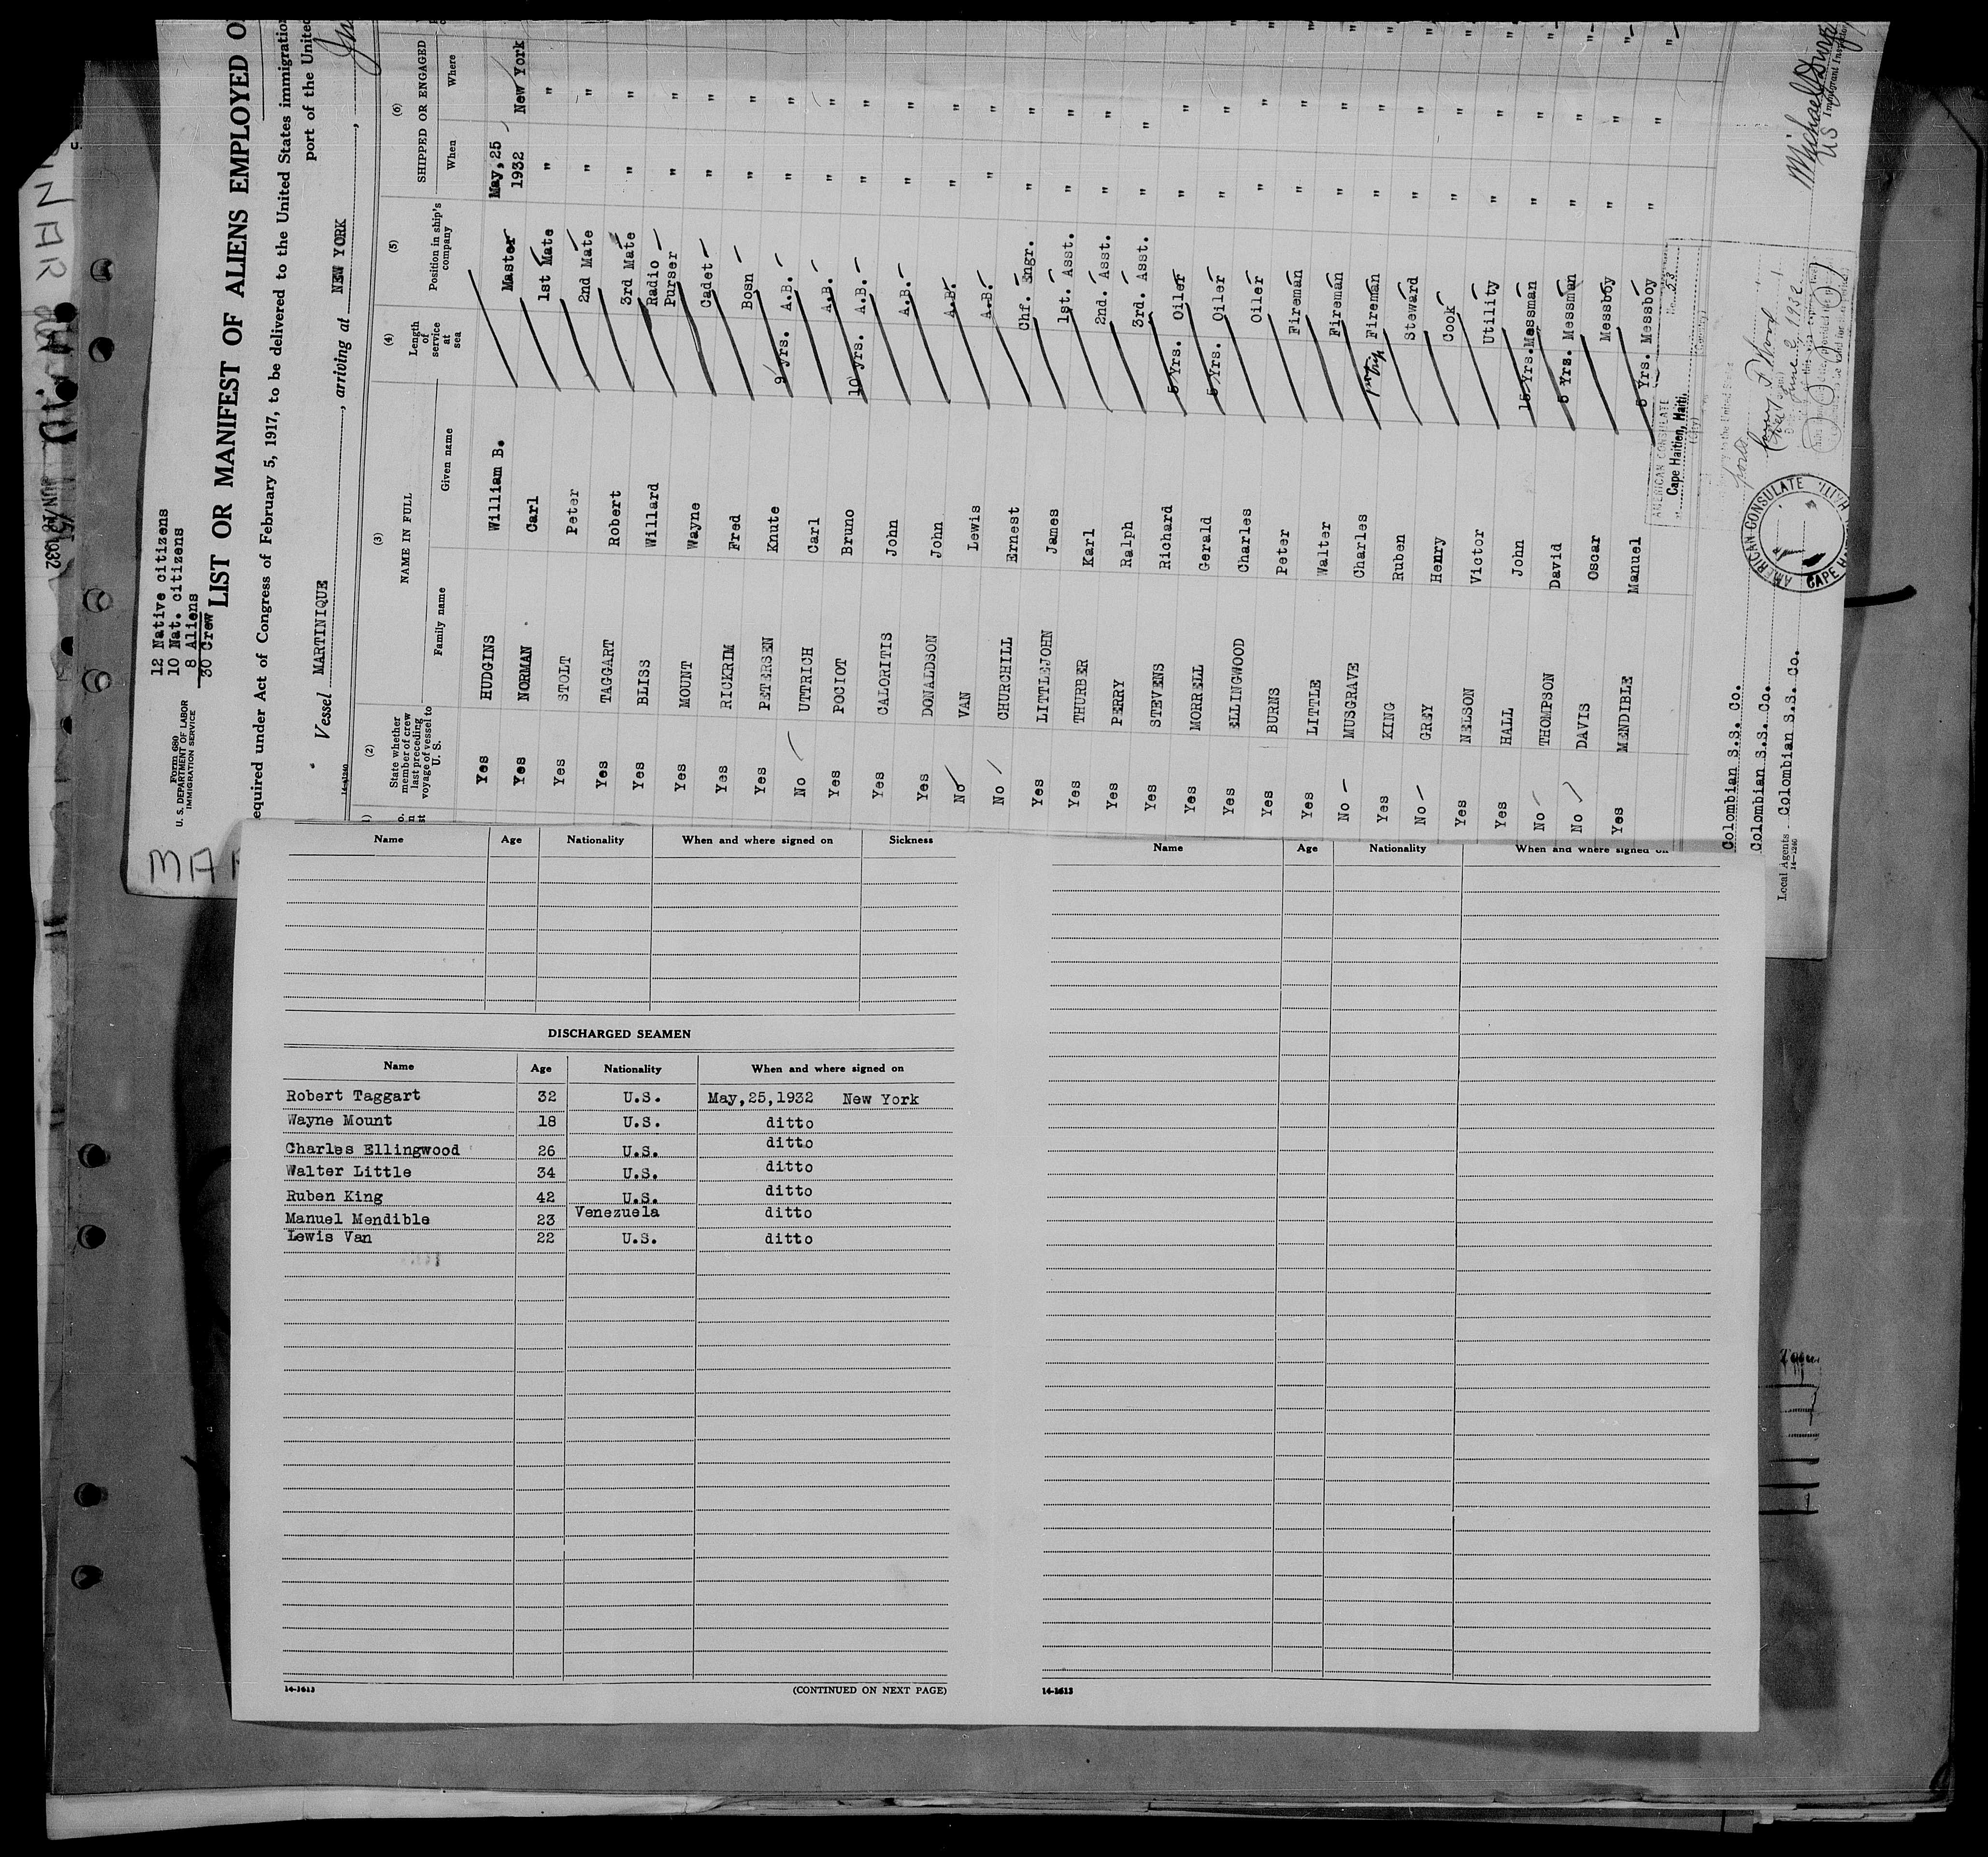 12 Native citizens
10 Nat. citizens
8 Aliens
30 Crew
Form 680
U. S. DEPARTMENT OF LABOR
IMMIGRATION SERVICE
LIST OR MANIFEST OF ALIENS EMPLOYED O
equired under Act of Congress of February 5, 1917, to be delivered to the United States immigration
port of the United
Vessel MARTINIQUE, arriving at NEW YORK,
14-1240
(2) (3) (4) (5) (6)
State whether member of crew last preceding voyage of vessel to U. S.
NAME IN FULL
Family name Given name
Length of service at sea
Position in ship's company
SHIPPED OR ENGAGED
When Where
Yes HUDGINS William B. Master May, 25 1932 New York
Yes NORMAN Carl 1st Mate " "
Yes STOLT Peter 2nd Mate " "
Yes TAGGART Robert 3rd Mate " "
Yes BLISS Willard Radio Purser " "
Yes MOUNT Wayne Cadet " "
Yes RICKRIM Fred Bosn " "
Yes PETERSEN Knute 9 yrs. A.B. " "
No UTTRICH Carl A.B. " "
Yes POCIOT Bruno 10 yrs. A.B. " "
Yes CALORITIS John A.B. " "
Yes DONALDSON John A.B. " "
No VAN Lewis A.B. " "
No CHURCHILL Ernest Chf. Engr. " "
Yes LITTLEJOHN James 1st. Asst. " "
Yes THURBER Karl 2nd. Asst. " "
Yes PERRY Ralph 3rd. Asst. " "
Yes STEVENS Richard 5 Yrs. Oiler " "
Yes MORRELL Gerald 5 Yrs. Oiler " "
Yes ELLINGWOOD Charles Oiler " "
Yes BURNS Peter Fireman " "
Yes LITTLE Walter Fireman " "
No MUSGRAVE Charles Fireman " "
Yes KING Ruben Steward " "
No GREY Henry Cook " "
Yes NELSON Victor Utility " "
Yes HALL John 15 Yrs. Messman " "
No THOMPSON David 5 Yrs. Messman " "
No DAVIS Oscar Messboy " "
Yes MENDIBLE Manuel 5 Yrs. Messboy " "
AMERICAN CONSULATE
Cape Haitien, Haiti,
(City) (Country)
No. 53
June 2 1932
AMERICAN CONSULATE
Colombian S.S. Co.
Colombian S.S. Co.
Local Agents Colombian S.S. Co.
14-1240
US Immigrant Inspector
JUN 1932
Name Age Nationality When and where signed on Sickness
DISCHARGED SEAMEN
Name Age Nationality When and where signed on
Robert Taggart 32 U.S. May,25,1932 New York
Wayne Mount 18 U.S. ditto
Charles Ellingwood 26 U.S. ditto
Walter Little 34 U.S. ditto
Ruben King 42 U.S. ditto
Manuel Mendible 23 Venezuela ditto
Lewis Van 22 U.S. ditto
14-1613
(CONTINUED ON NEXT PAGE)
Name Age Nationality When and where signed on
14-1613